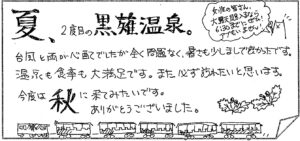 夏、2度目の黒薙温泉。
台風と雨が心配でしたが全く問題なく、暑さも少しまして良かったです。
温泉も食事も大満足です。また必ず訪れたいと思います。
今度は秋に来てみたいです。
ありがとうございました。
女湯の皆さん、